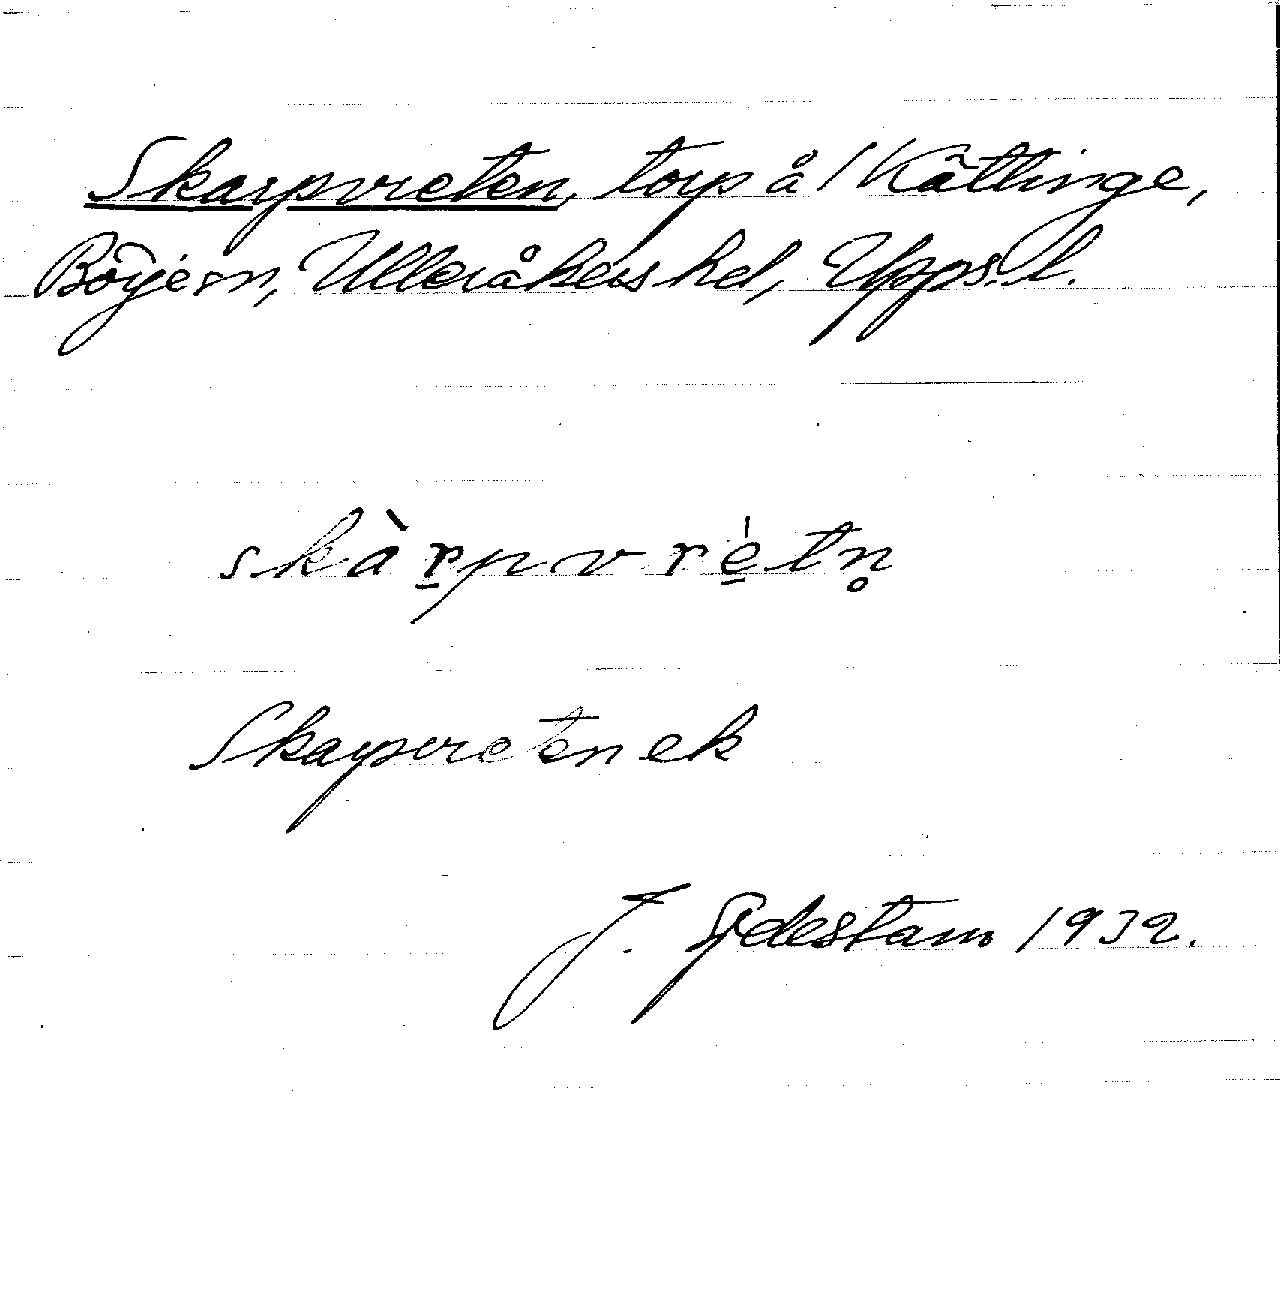 Skarpvreten, torp å / Kättinge,
Börje sn, Ulleråkers hd, Upps. l.
skàr̠pvrė̠tn̥
Skarpvreten ek
J. Sjdestam 1932.